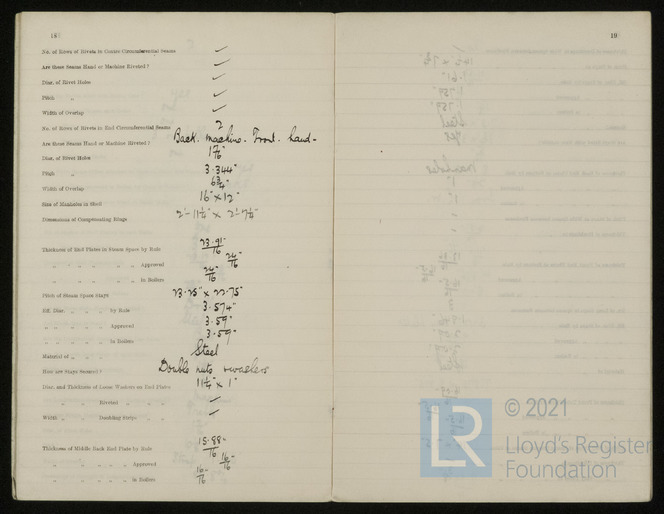 18
19
No. of Rows of Rivets in Centre Circumferential Seams ✓
Are these Seams Hand or Machine Riveted? ✓
Diar. of Rivet Holes ✓
Pitch „ ✓
Width of Overlap ✓
No. of Rows of Rivets in End Circumferential Seams 2
Are these Seams Hand or Machine Riveted? Back. machine. Front. hand-
Diar. of Rivet Holes
Pitch „ 3.344"
Width of Overlap 6¾"
Size of Manholes in Shell 16" x 12"
Dimensions of Compensating Rings 2'-11¼" x 2'-7¼"
Thickness of End Plates in Steam Space by Rule 23.91/16"
„ „ „ „ „ Approved 24/16"
„ „ „ „ „ in Boilers 24/16"
Pitch of Steam Space Stays 23.25" x 22.75"
Eff. Diar. „ „ „ by Rule 3.574"
„ „ „ „ Approved 3.59"
„ „ „ „ in Boilers 3.59"
Material of „ „ Steel
How are Stays Secured? Double nuts & washers
Diar. and Thickness of Loose Washers on End Plates 11¼" x 1"
„ „ Riveted „ „ ✓
Width „ „ Doubling Strips „ „ ✓
Thickness of Middle Back End Plate by Rule 15.88/16"
„ „ „ „ Approved 16/16"
„ „ „ „ in Boilers 16/16"
© 2021
LR
Lloyd's Register
Foundation